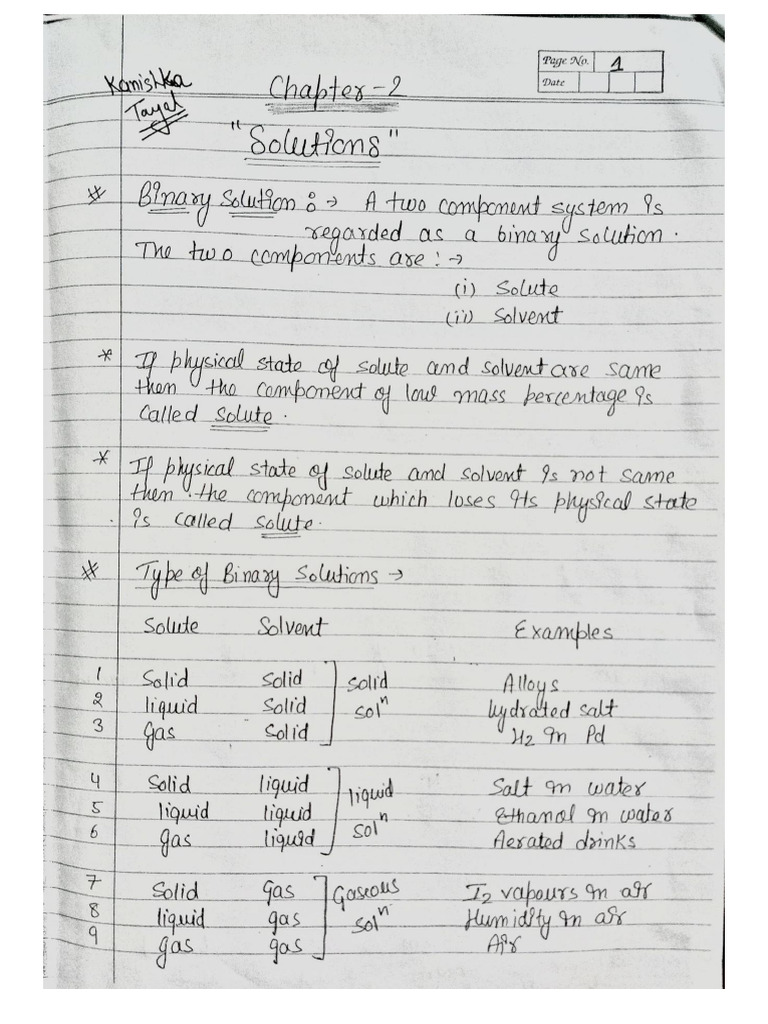 Kanishka
Tayal
Page No. 1
Date
Chapter-2
"Solutions"
Binary Solution :→ A two component system is
regarded as a binary solution.
The two components are :→
(i) Solute
(ii) Solvent
* If physical state of solute and solvent are same
then the component of low mass percentage is
called solute.
* If physical state of solute and solvent is not same
then the component which loses its physical state
is called solute.
# Type of Binary Solutions →
Solute Solvent Examples
1 Solid Solid solid Alloys
2 liquid Solid solⁿ hydrated salt
3 Gas Solid H2 in Pd
4 Solid liquid liquid Salt in water
5 liquid liquid solⁿ Ethanol in water
6 gas liquid Aerated drinks
7 Solid Gas Gaseous I2 vapours in air
8 liquid gas solⁿ Humidity in air
9 gas gas Air